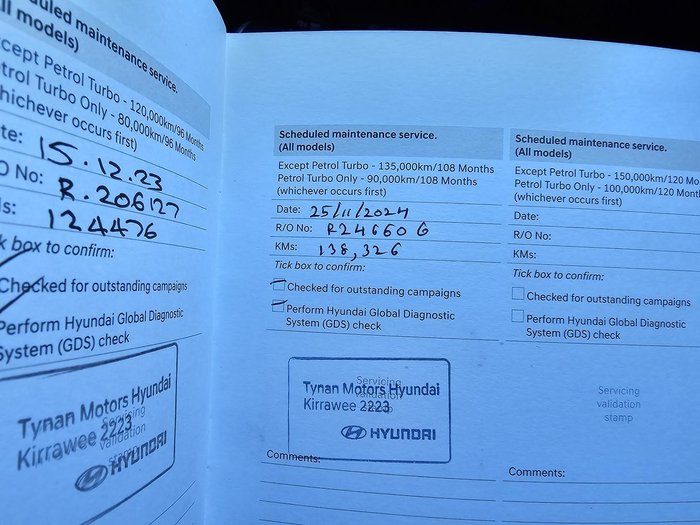 duled maintenance service.
All models)
Except Petrol Turbo - 120,000km/96 Months
etrol Turbo Only - 80,000km/96 Months
whichever occurs first)
te: 15.12.23
O No: R.206127
s: 124476
ck box to confirm:
Checked for outstanding campaigns
Perform Hyundai Global Diagnostic
System (GDS) check
Servicing
validation
Tynan Motors Hyundai
Kirrawee 2223
HYUNDAI
Scheduled maintenance service.
(All models)
Except Petrol Turbo - 135,000km/108 Months
Petrol Turbo Only - 90,000km/108 Months
(whichever occurs first)
Date: 25/11/2024
R/O No: R24660 6
KMs: 138,326
Tick box to confirm:
Checked for outstanding campaigns
Perform Hyundai Global Diagnostic
System (GDS) check
Servicing
validation
stamp
Tynan Motors Hyundai
Kirrawee 2223
HYUNDAI
Comments:
Scheduled maintenance service.
(All models)
Except Petrol Turbo - 150,000km/120 Mo
Petrol Turbo Only - 100,000km/120 Mont
(whichever occurs first)
Date:
R/O No:
KMs:
Tick box to confirm:
Checked for outstanding campaigns
Perform Hyundai Global Diagnostic
System (GDS) check
Servicing
validation
stamp
Comments: